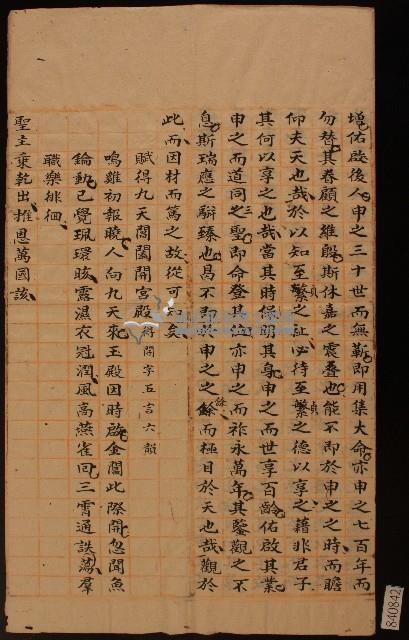 增佑啟後人申之三十世而無斁即用集大命亦申之七百年而
勿替其眷顧之維殷斯休嘉之震疊也能不即於申之之時而瞻
仰夫天也哉於以知至繁之祉必待至繁之德以享之藉非君子
貞
貞
其何以享之也哉當其時保朋其身申之而世享百齡佑啟其業
申之而道同三聖即命登其位亦申之而祚永萬年其鑒觀之不
息斯瑞應之駢臻也曷不即於申之之餘而極目於天也哉觀於
餘
此而因材而篤之故從可知矣
賦得九天閶闔開宮殿得開字五言六韻
鳴雞初報曉人向九天來玉殿因時啟金閶此際開忽聞魚
鑰動已覺珮環陔露濕衣冠潤風高燕雀回三霄通誅蕩羣
職樂徘徊
聖主乘乾出推恩萬國該
840842